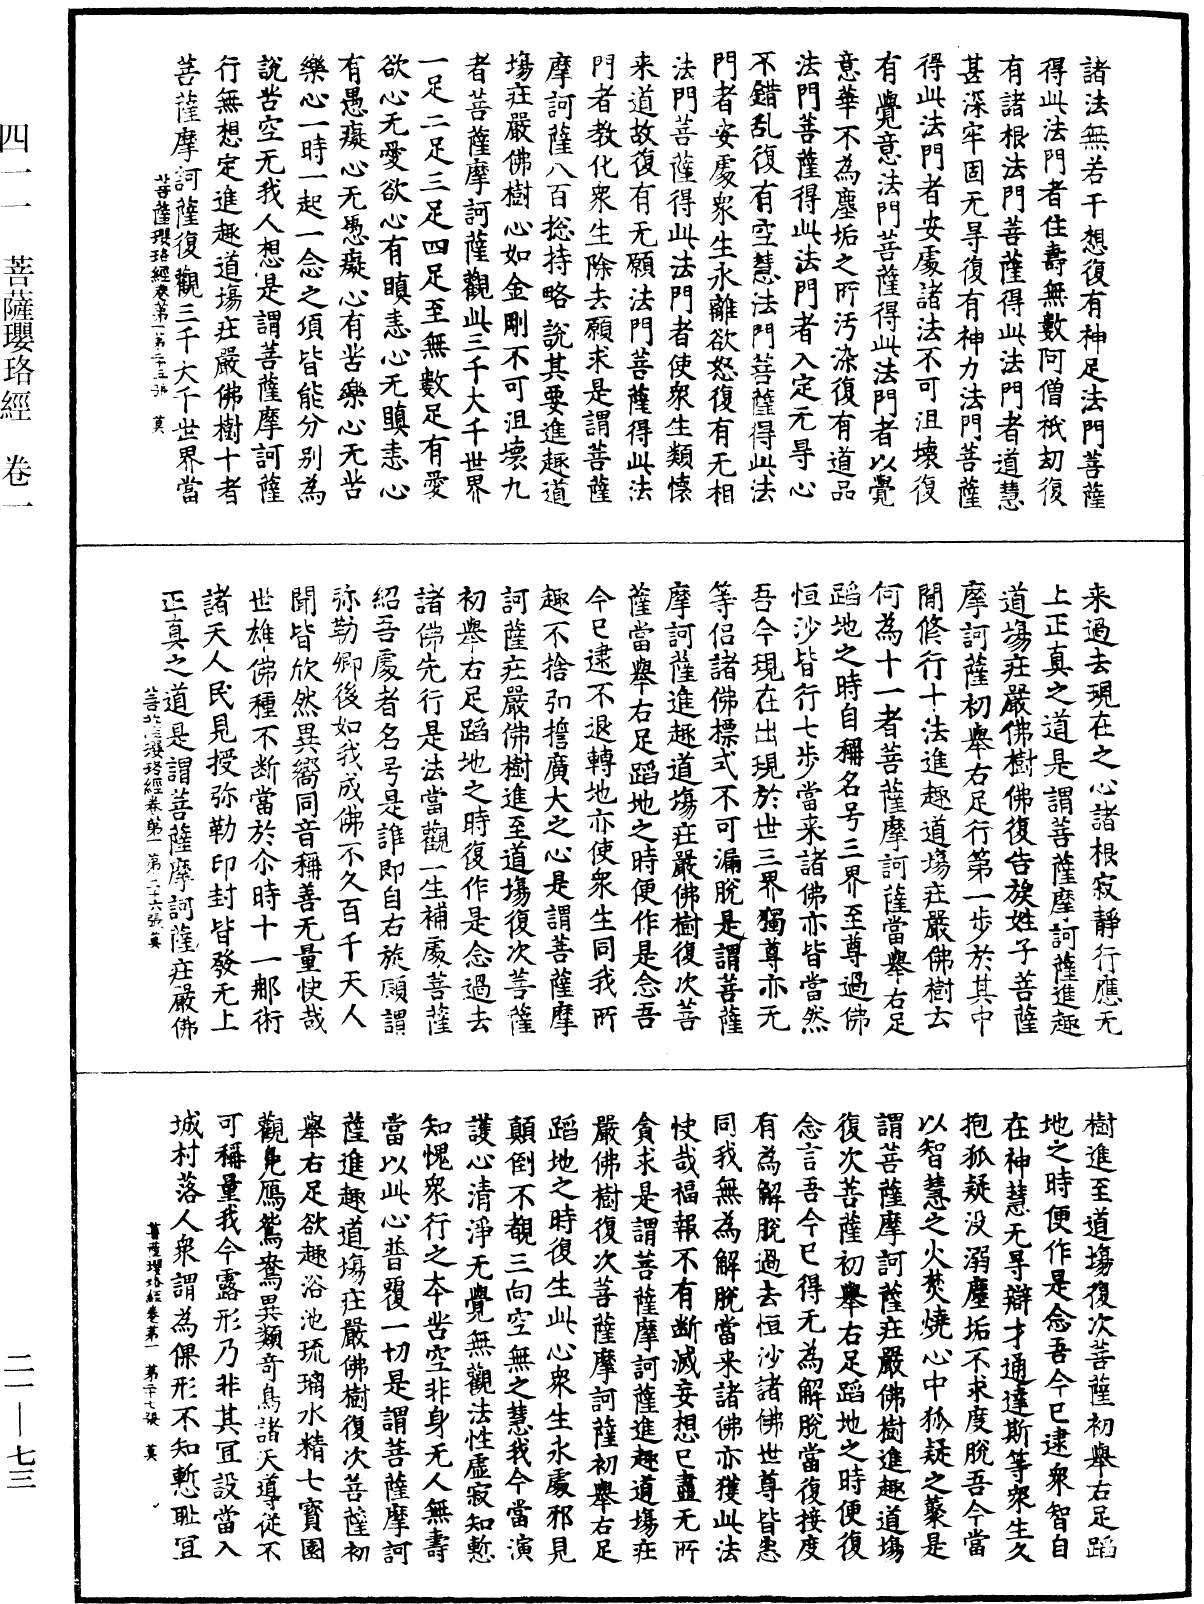 諸法無若干想復有神足法門菩薩
得此法門者住壽無數阿僧祇劫復
有諸根法門菩薩得此法門者道慧
甚深牢固无㝵復有神力法門菩薩
得此法門者安處諸法不可沮壞復
有覺意法門菩薩得此法門者以覺
意華不為塵垢之所汚染復有道品
法門菩薩得此法門者入定无㝵心
不錯乱復有空慧法門菩薩得此法
門者安處衆生永離欲怒復有无相
法門菩薩得此法門者使衆生類懷
来道故復有无願法門菩薩得此法
門者教化衆生除去願求是謂菩薩
摩訶薩八百捴持略說其要進趣道
場㽵嚴佛樹心如金剛不可沮壞九
者菩薩摩訶薩觀此三千大千世界
一足二足三足四足至無數足有愛
欲心无愛欲心有瞋恚心无瞋恚心
有愚癡心无愚癡心有苦樂心无苦
樂心一時一起一念之項皆能分别為
說苦空无我人想是謂菩薩摩訶薩
行無想定進趣道場㽵嚴佛樹十者
菩薩摩訶薩復觀三千大千世界當
菩薩瓔珞經卷第一 第二十五張 莫
来過去現在之心諸根寂靜行應无
上正真之道是謂菩薩摩訶薩進趣
道場㽵嚴佛樹佛復告族姓子菩薩
摩訶薩初舉右足行第一步於其中
間修行十法進趣道場㽵嚴佛樹云
何為十一者菩薩摩訶薩當舉右足
蹈地之時自稱名号三界至尊過佛
恒沙皆行七步當来諸佛亦皆當然
吾今現在出現於世三界獨尊亦无
等侣諸佛摽式不可漏脫是謂菩薩
摩訶薩進趣道場㽵嚴佛樹復次菩
薩當舉右足蹈地之時便作是念吾
今已逮不退轉地亦使衆生同我所
趣不捨弘誓廣大之心是謂菩薩摩
訶薩㽵嚴佛樹進至道場復次菩薩
初舉右足蹈地之時復作是念過去
諸佛先行是法當觀一生補處菩薩
紹吾處者名号是誰即自右旋顧謂
弥勒卿後如我成佛不久百千天人
聞皆欣然異嚮同音稱善无量快哉
世雄佛種不断當於尒時十一那術
諸天人民見授弥勒印封皆發无上
正真之道是謂菩薩摩訶薩㽵嚴佛
菩薩瓔珞經卷第一 第二十六張 莫
樹進至道場復次菩薩初舉右足蹈
地之時便作是念吾今已逮衆智自
在神慧无㝵辯才通達斯等衆生久
抱狐疑没溺塵垢不求度脫吾今當
以智慧之火焚燒心中狐疑之蘗是
謂菩薩摩訶薩㽵嚴佛樹進趣道場
復次菩薩初舉右足蹈地之時便復
念言吾今已得无為解脫當復接度
有為解脫過去恒沙諸佛世尊皆悉
同我無為解脫當来諸佛亦獲此法
快哉福報不有断滅妄想已盡无所
貪求是謂菩薩摩訶薩進趣道場㽵
嚴佛樹復次菩薩摩訶薩初舉右足
蹈地之時復生此心衆生永處邪見
顛倒不覩三向空無之慧我今當演
護心清淨无覺無觀法性虛寂知慙
知愧衆行之本苦空非身无人無壽
當以此心普覆一切是謂菩薩摩訶
薩進趣道場㽵嚴佛樹復次菩薩初
舉右足欲趣浴池琉璃水精七寶園
觀鳧鴈鴛鴦異類奇鳥諸天導從不
可稱量我今露形乃非其宜設當入
城村落人衆謂為倮形不知慙耻宜
菩薩瓔珞經卷第一 第二十七張 莫
四一一 菩薩瓔珞經 卷一
二一—七三